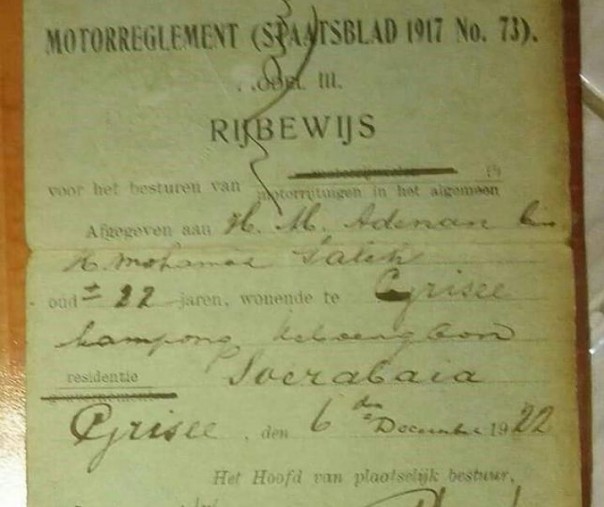 MOTORREGLEMENT (STAATSBLAD 1917 No. 73).
MODEL III.
RIJBEWIJS
motorrijwielen (*)
voor het besturen van motorrijtuigen in het algemeen
Afgegeven aan H. M. Adenan bin
H Mohamad Saleh
oud ± 22 jaren, wonende te Grisee
kampong
residentie Soerabaia
gouvernement
Grisee, den 6 den December 1922
Het Hoofd van plaatselijk bestuur,